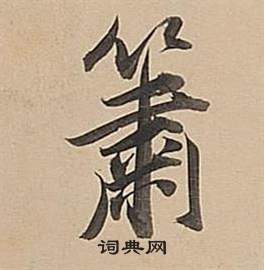 簫
词典网